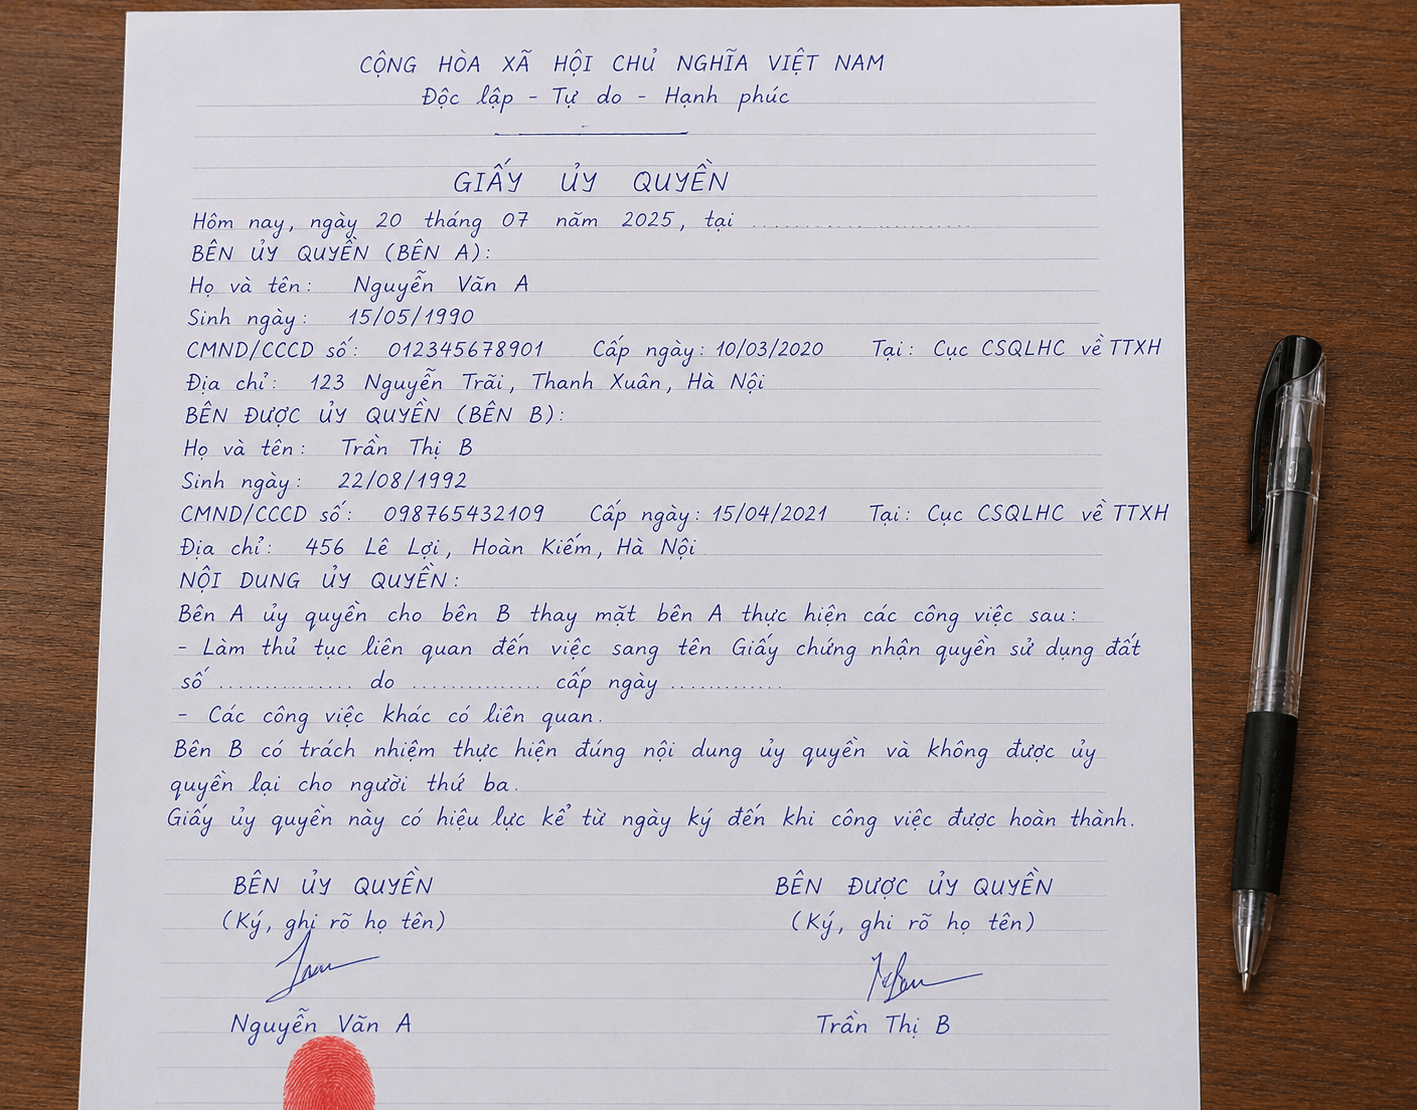 CỘNG HÒA XÃ HỘI CHỦ NGHĨA VIỆT NAM
Độc lập - Tự do - Hạnh phúc
GIẤY ỦY QUYỀN
Hôm nay, ngày 20 tháng 07 năm 2025, tại .......................
BÊN ỦY QUYỀN (BÊN A):
Họ và tên: Nguyễn Văn A
Sinh ngày: 15/05/1990
CMND/CCCD số: 012345678901 Cấp ngày: 10/03/2020 Tại: Cục CSQLHC về TTXH
Địa chỉ: 123 Nguyễn Trãi, Thanh Xuân, Hà Nội
BÊN ĐƯỢC ỦY QUYỀN (BÊN B):
Họ và tên: Trần Thị B
Sinh ngày: 22/08/1992
CMND/CCCD số: 098765432109 Cấp ngày: 15/04/2021 Tại: Cục CSQLHC về TTXH
Địa chỉ: 456 Lê Lợi, Hoàn Kiếm, Hà Nội
NỘI DUNG ỦY QUYỀN:
Bên A ủy quyền cho bên B thay mặt bên A thực hiện các công việc sau:
- Làm thủ tục liên quan đến việc sang tên Giấy chứng nhận quyền sử dụng đất
số ............... do .............. cấp ngày ............
- Các công việc khác có liên quan.
Bên B có trách nhiệm thực hiện đúng nội dung ủy quyền và không được ủy
quyền lại cho người thứ ba.
Giấy ủy quyền này có hiệu lực kể từ ngày ký đến khi công việc được hoàn thành.
BÊN ỦY QUYỀN
BÊN ĐƯỢC ỦY QUYỀN
(Ký, ghi rõ họ tên)
(Ký, ghi rõ họ tên)
Nguyễn Văn A
Trần Thị B